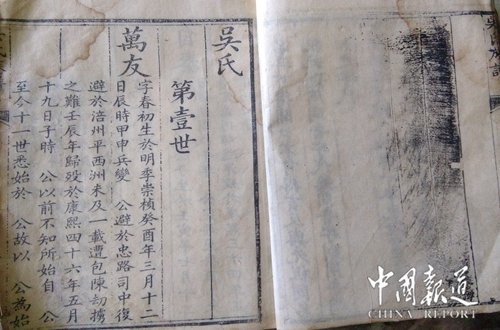 吳氏
第壹世
萬友
字春初生於明季崇禎癸酉年三月十二
日辰時甲申兵變 公避於忠路司中後
避於涪州平西洲未及一載遭包陳劫擄
之難壬辰年歸歿於康熙四十六年五月
十九日子時 公以前不知所始自 公
至今十一世悉始於 公故以 公為始
中国報道
CHINA REPORT